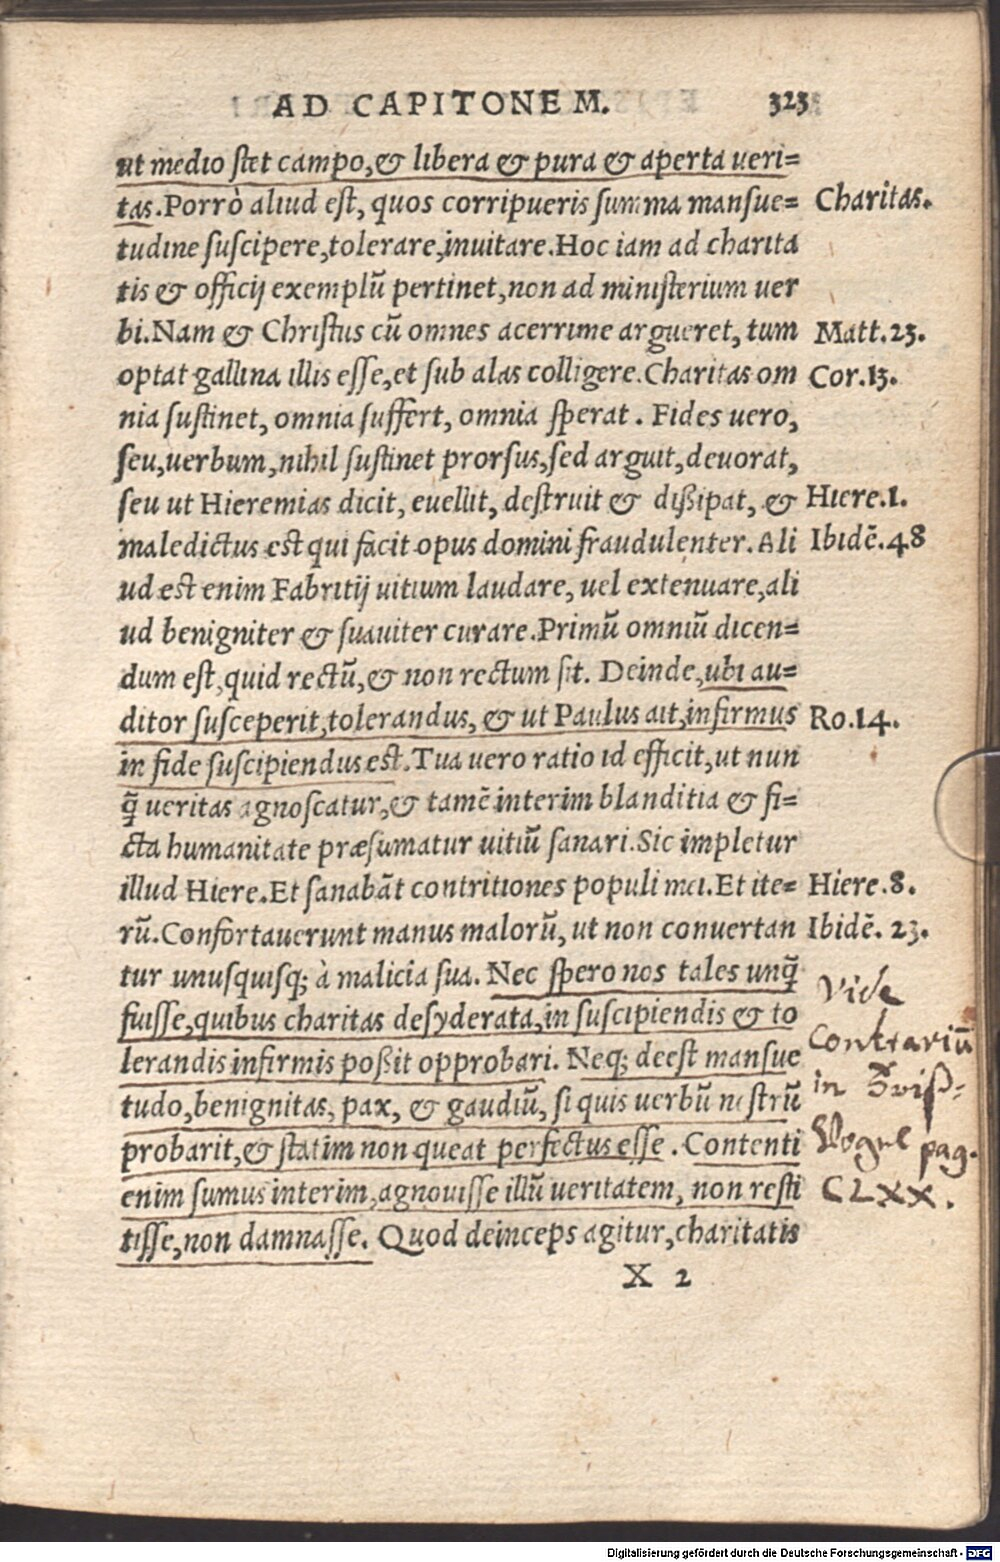 AD CAPITONEM. 323
ut medio stet campo, & libera & pura & aperta ueri=
tas. Porrò aliud est, quos corripueris summa mansue= Charitas.
tudine suscipere, tolerare, inuitare. Hoc iam ad charita
tis & officij exemplũ pertinet, non ad ministerium uer
bi. Nam & Christus cũ omnes acerrime argueret, tum Matt. 23.
optat gallina illis esse, et sub alas colligere. Charitas om Cor. 13.
nia sustinet, omnia suffert, omnia sperat. Fides uero,
seu, uerbum, nihil sustinet prorsus, sed arguit, deuorat,
seu ut Hieremias dicit, euellit, destruit & dißipat, & Hiere. 1.
maledictus est qui facit opus domini fraudulenter. Ali Ibidẽ. 48
ud est enim Fabritij uitium laudare, uel extenuare, ali
ud benigniter & suauiter curare. Primũ omniũ dicen=
dum est, quid rectũ, & non rectum sit. Deinde, ubi au=
ditor susceperit, tolerandus, & ut Paulus ait, infirmus Ro. 14.
in fide suscipiendus est. Tua uero ratio id efficit, ut nun
q̃ ueritas agnoscatur, & tamẽ interim blanditia & fi=
cta humanitate præsumatur uitiũ sanari. Sic impletur
illud Hiere. Et sanabãt contritiones populi mei. Et ite= Hiere. 8.
rũ. Confortauerunt manus malorũ, ut non conuertan Ibidẽ. 23.
tur unusquisq; à malicia sua. Nec spero nos tales unq̃
fuisse, quibus charitas desyderata, in suscipiendis & to
lerandis infirmis poßit opprobari. Neq; deest mansue
tudo, benignitas, pax, & gaudiũ, si quis uerbũ nostrũ
probarit, & statim non queat perfectus esse. Contenti
enim sumus interim, agnouisse illũ ueritatem, non resti
tisse, non damnasse. Quod deinceps agitur, charitatis
X 2
Vide
contrariũ
in
pag.
CLXX.
Digitalisierung gefördert durch die Deutsche Forschungsgemeinschaft - DFG